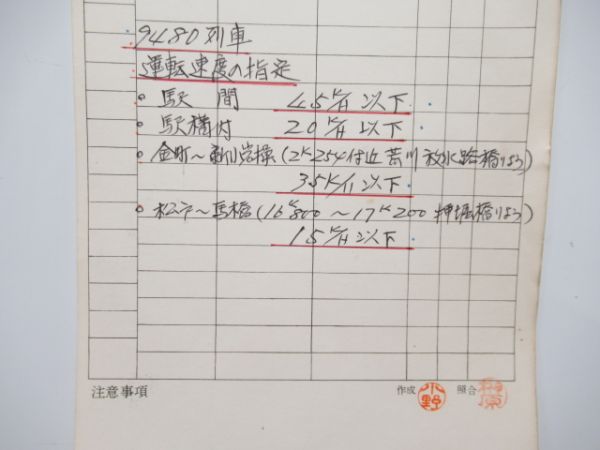 9480列車
運転速度の指定
○ 駅間 45K/H以下
○ 駅構内 20K/H以下
○ 金町～新小岩操(2K254付近 荒川放水路橋りょう)
35K/H以下
○ 松戸～馬橋(16K800～17K200 押堀橋りょう)
15K/H以下
注意事項 作成 小野 照合 榊原